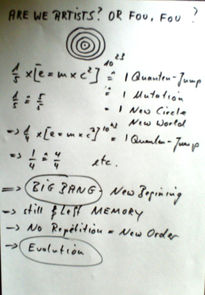 ARE WE ARTISTS? OR FOU, FOU ?
1/5 x [e = m x c²] 10²³ ≙ 1 Quanten-Jump
≙ 1 Mutation
1/5 ≙ 5/5 = 1 New Circle
New World
=> 1/4 x [e = m x c²] 10²³ ≙ 1 Quanten-Jump
=> 1/4 ≙ 4/4 etc.
=> BIG BANG - New Beginning
-> still & Left MEMORY
-> No Repetition = New Order
-> Evolution